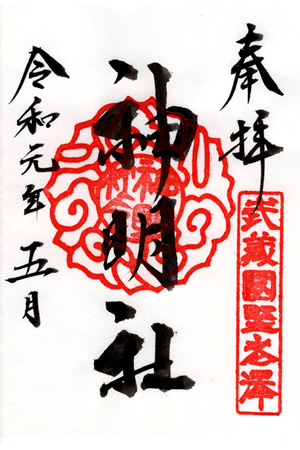 奉拝
武蔵國
神明社
令和元年五月